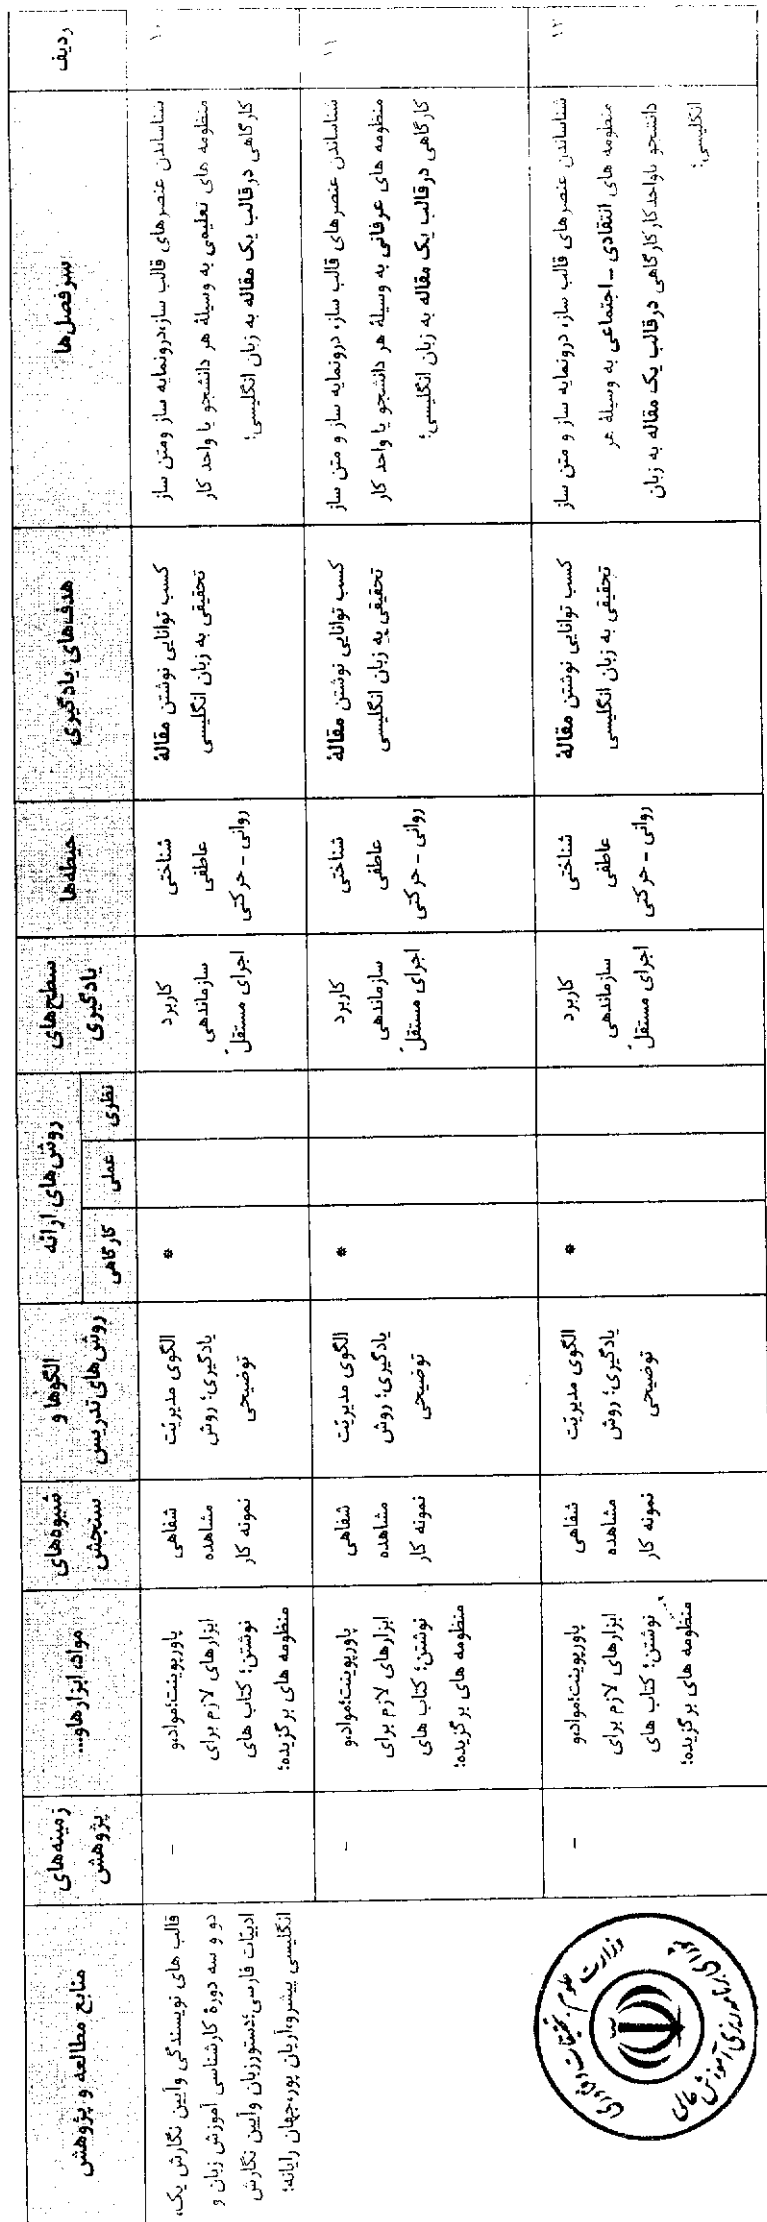 ردیف
سرفصل‌ها
هدف‌های یادگیری
حیطه‌ها
سطح‌های
یادگیری
روش‌های ارائه
نظری
عملی
کارگاهی
الگوها و
روش‌های تدریس
شیوه‌های
سنجش
مواد، ابزارهاو...
زمینه‌های
پژوهش
منابع مطالعه و پژوهش
۱۰
شناساندن عنصرهای قالب ساز، درونمایه ساز ومتن ساز
منظومه های تعلیمی به وسیلۀ هر دانشجو یا واحد کار
کارگاهی درقالب یک مقاله به زبان انگلیسی؛
کسب توانایی نوشتن مقالۀ
تحقیقی به زبان انگلیسی
شناختی
عاطفی
روانی - حرکتی
کاربرد
سازماندهی
اجرای مستقل
*
الگوی مدیریّت
یادگیری؛ روش
توضیحی
شفاهی
مشاهده
نمونه کار
پاورپوینت؛مواد،و
ابزارهای لازم برای
نوشتن؛ کتاب های
منظومه های برگزیده؛
-
قالب های نویسندگی وآیین نگارش یک،
دو و سه دورۀ کارشناسی آموزش زبان و
ادبیّات فارسی؛دستورزبان وآیین نگارش
انگلیسی پیشرو،آریان پور،جهان رایانه؛
۱۱
شناساندن عنصرهای قالب ساز، درونمایه ساز و متن ساز
منظومه های عرفانی به وسیلۀ هر دانشجو یا واحد کار
کارگاهی درقالب یک مقاله به زبان انگلیسی؛
کسب توانایی نوشتن مقالۀ
تحقیقی به زبان انگلیسی
شناختی
عاطفی
روانی - حرکتی
کاربرد
سازماندهی
اجرای مستقل
*
الگوی مدیریّت
یادگیری؛ روش
توضیحی
شفاهی
مشاهده
نمونه کار
پاورپوینت؛مواد،و
ابزارهای لازم برای
نوشتن؛ کتاب های
منظومه های برگزیده؛
-
۱۲
شناساندن عنصرهای قالب ساز، درونمایه ساز و متن ساز
منظومه های انتقادی – اجتماعی به وسیلۀ هر
دانشجو یاواحدکارکارگاهی درقالب یک مقاله به زبان
انگلیسی؛
کسب توانایی نوشتن مقالۀ
تحقیقی به زبان انگلیسی
شناختی
عاطفی
روانی - حرکتی
کاربرد
سازماندهی
اجرای مستقل
*
الگوی مدیریّت
یادگیری؛ روش
توضیحی
شفاهی
مشاهده
نمونه کار
پاورپوینت؛مواد،و
ابزارهای لازم برای
نوشتن؛ کتاب های
منظومه های برگزیده؛
-
وزارت علوم، تحقیقات و فناوری
برنامه‌ریزی آموزش عالی